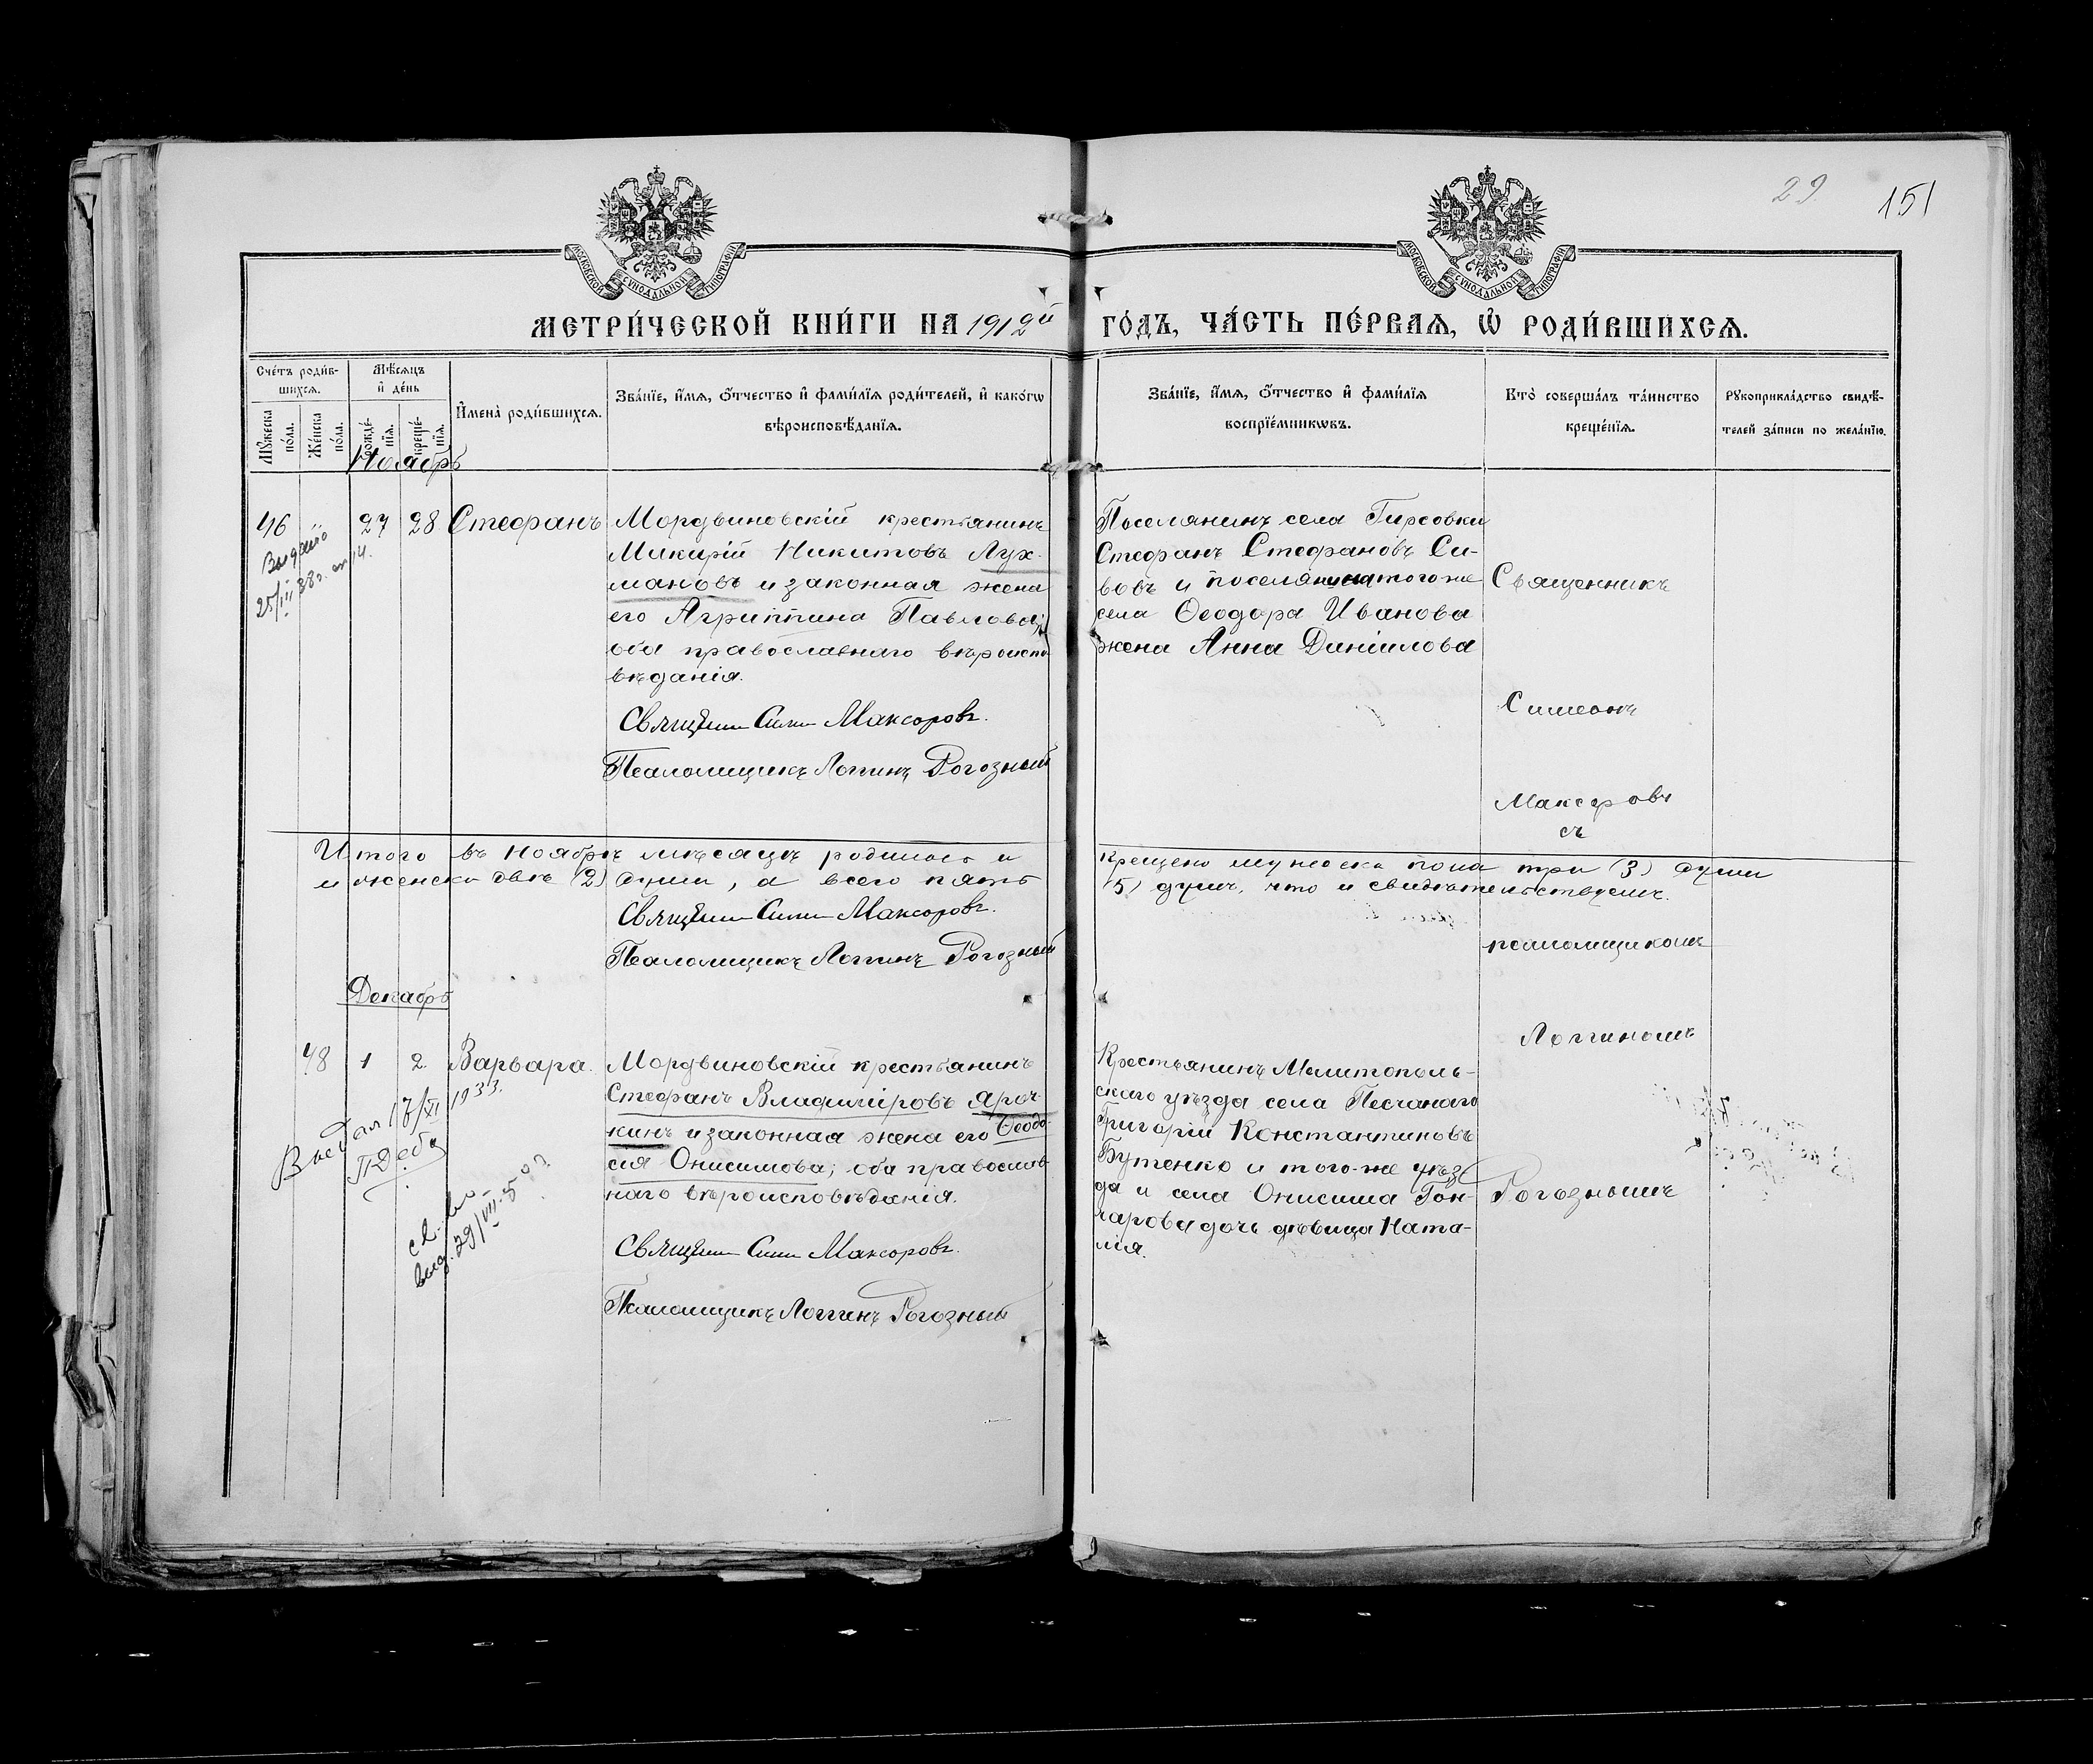 29 151
МОСКОВСКОЙ СѴНОДАЛЬНОЙ ТИПОГРАФІИ
МОСКОВСКОЙ СѴНОДАЛЬНОЙ ТИПОГРАФІИ
МЕТРИ́ЧЕСКОЙ КНИ́ГИ НА 1912й ГО́ДЪ, ЧА́СТЬ ПЕ́РВАѦ, Ѡ҆ РОДИ́ВШИХСѦ.
Сче́тъ роди́в-
шихсѧ.
Мꙋжеска
по́ла.
Же́нска
по́ла.
Мѣ́сѧцъ
и҆ де́нь
рожде́-
нїѧ.
креще́-
нїѧ.
И҆мена̀ роди́вшихсѧ.
Зва́нїе, и҆́мѧ, ѻ҆́тчество и҆ фами́лїѧ роди́телей, и҆ како́гѡ
вѣроисповѣ́данїѧ.
Зва́нїе, и҆́мѧ, ѻ҆́тчество и҆ фами́лїѧ
воспрїе́мникѡвъ.
Кто̀ соверша́лъ та́инство
креще́нїѧ.
Рꙋкоприкла́дство свидѣ́-
телей за́писи по жела́нїю.
Ноябрь
46 27 28 Стефанъ
Выдано
25/III 38 г.
Мордвиновскій крестьянинъ
Макарій Никитовъ Лух-
мановъ и законная жена
его Агриппина Павлова;
оба православнаго вѣроиспо-
вѣданія.
Священ. Сим. Максоровъ.
Псаломщикъ Логгинъ Рогозный
Поселянинъ села Гирсовки
Стефанъ Стефановъ Си-
вовъ и поселянина того-же
села Ѳеодора Иванова
жена Анна Даніилова
Священникъ
Симеонъ
Максоровъ
съ
псаломщикомъ
Логгиномъ
Рогознымъ
Итого въ Ноябрѣ мѣсяцѣ родилось и крещено мужеска пола три (3) души
и женска двѣ (2) души, а всего пять (5) душъ, что и свидѣтельствуемъ.
Священ. Сим. Максоровъ.
Псаломщикъ Логгинъ Рогозный
Декабрь
48 1 2. Варвара.
17/XI 1933.
выд. 29/VII
Мордвиновскій крестьянинъ
Стефанъ Владиміровъ Яроч-
кинъ и законная жена его Ѳеодо-
сія Онисимова; оба православ-
наго вѣроисповѣданія.
Священ. Сим. Максоровъ.
Псаломщикъ Логгинъ Рогозный
Крестьянинъ Мелитополь-
скаго уѣзда села Песчанаго
Григорій Константиновъ
Бутенко и того-же уѣз-
да и села Онисима Гон-
чарова дочь дѣвица Ната-
лія.